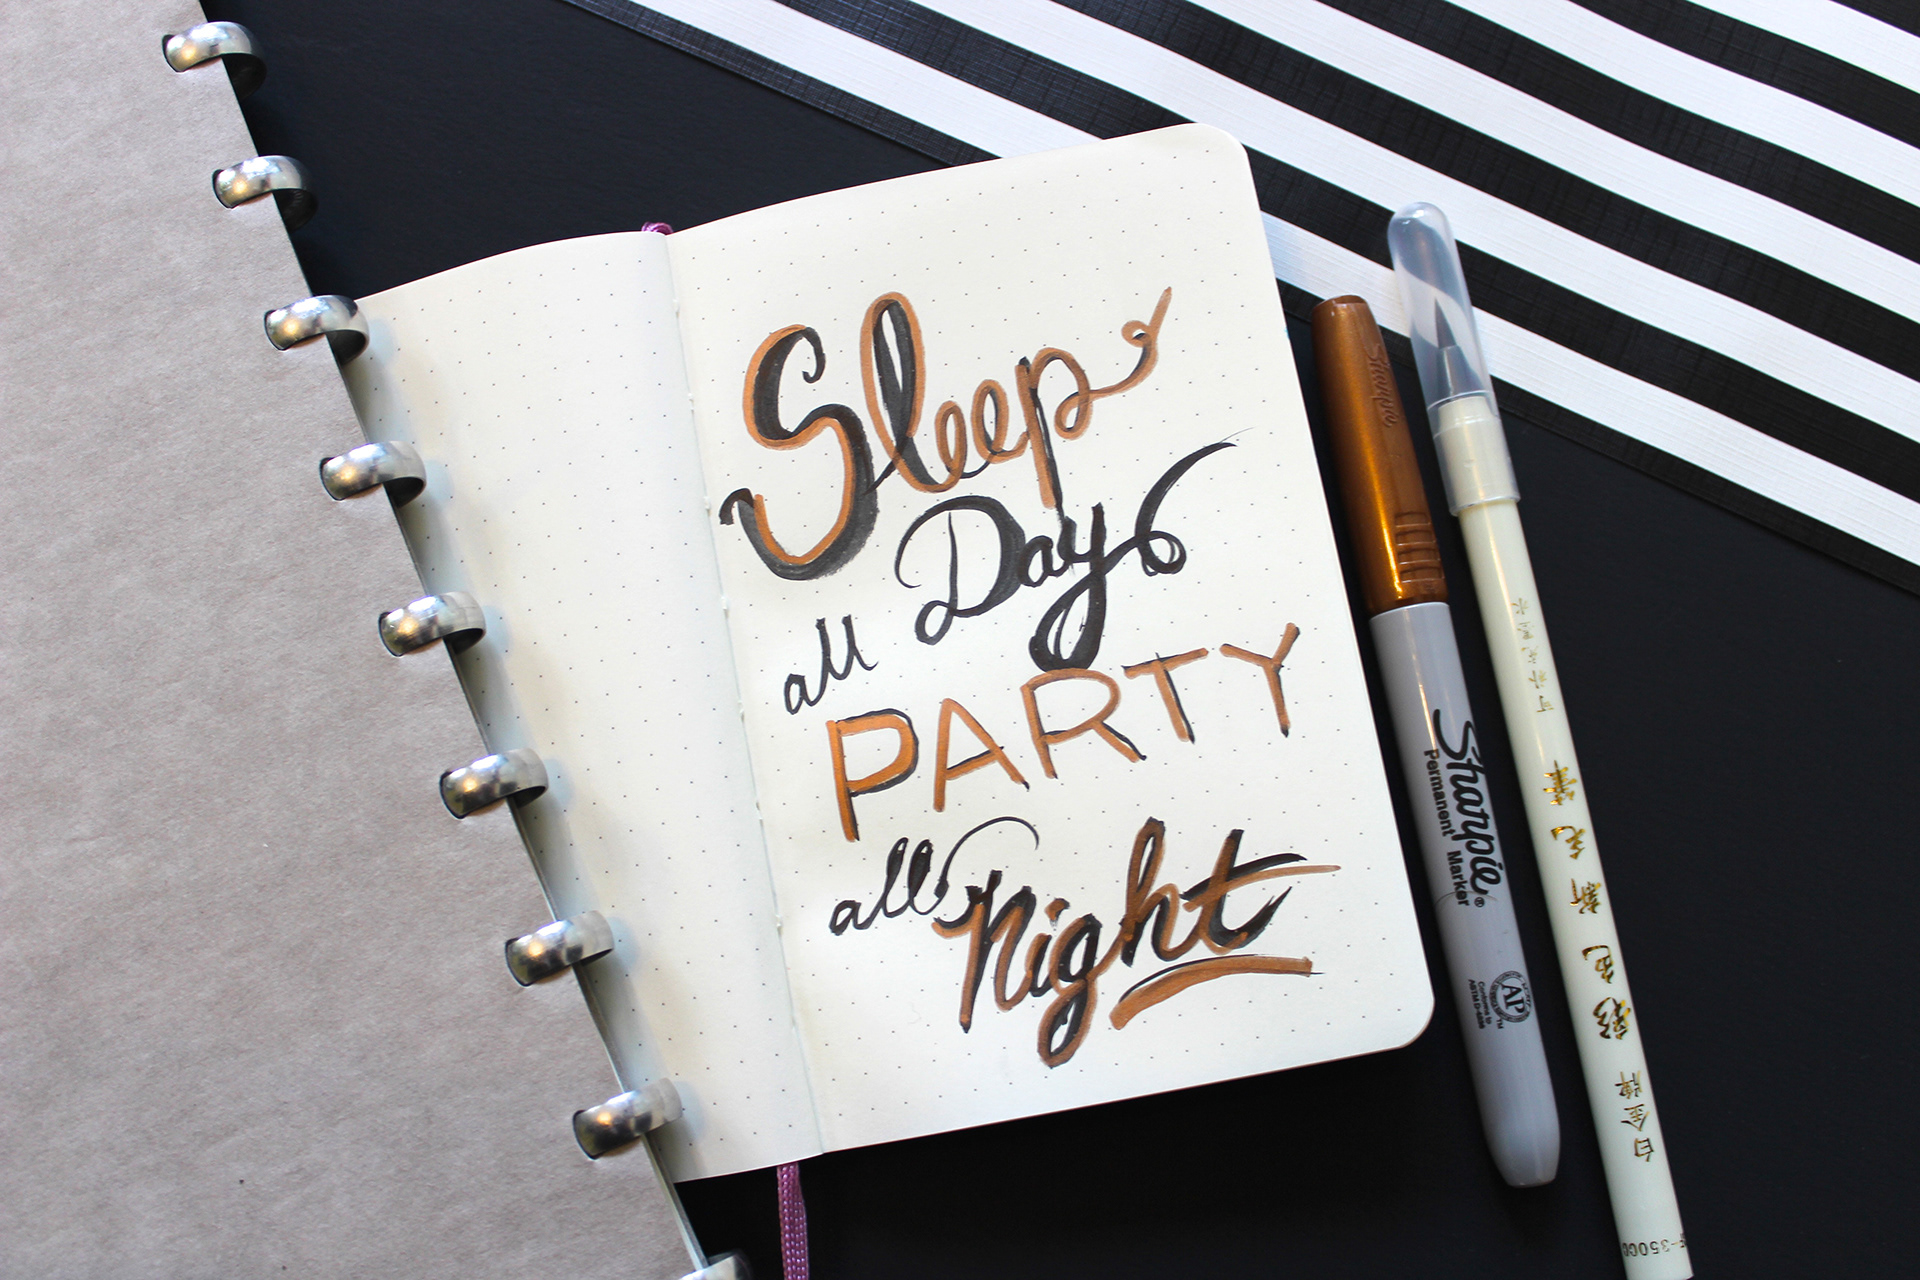 Sleep
all Day
PARTY
all Night
Sharpie
Sharpie®
Permanent Marker
AP
白金牌